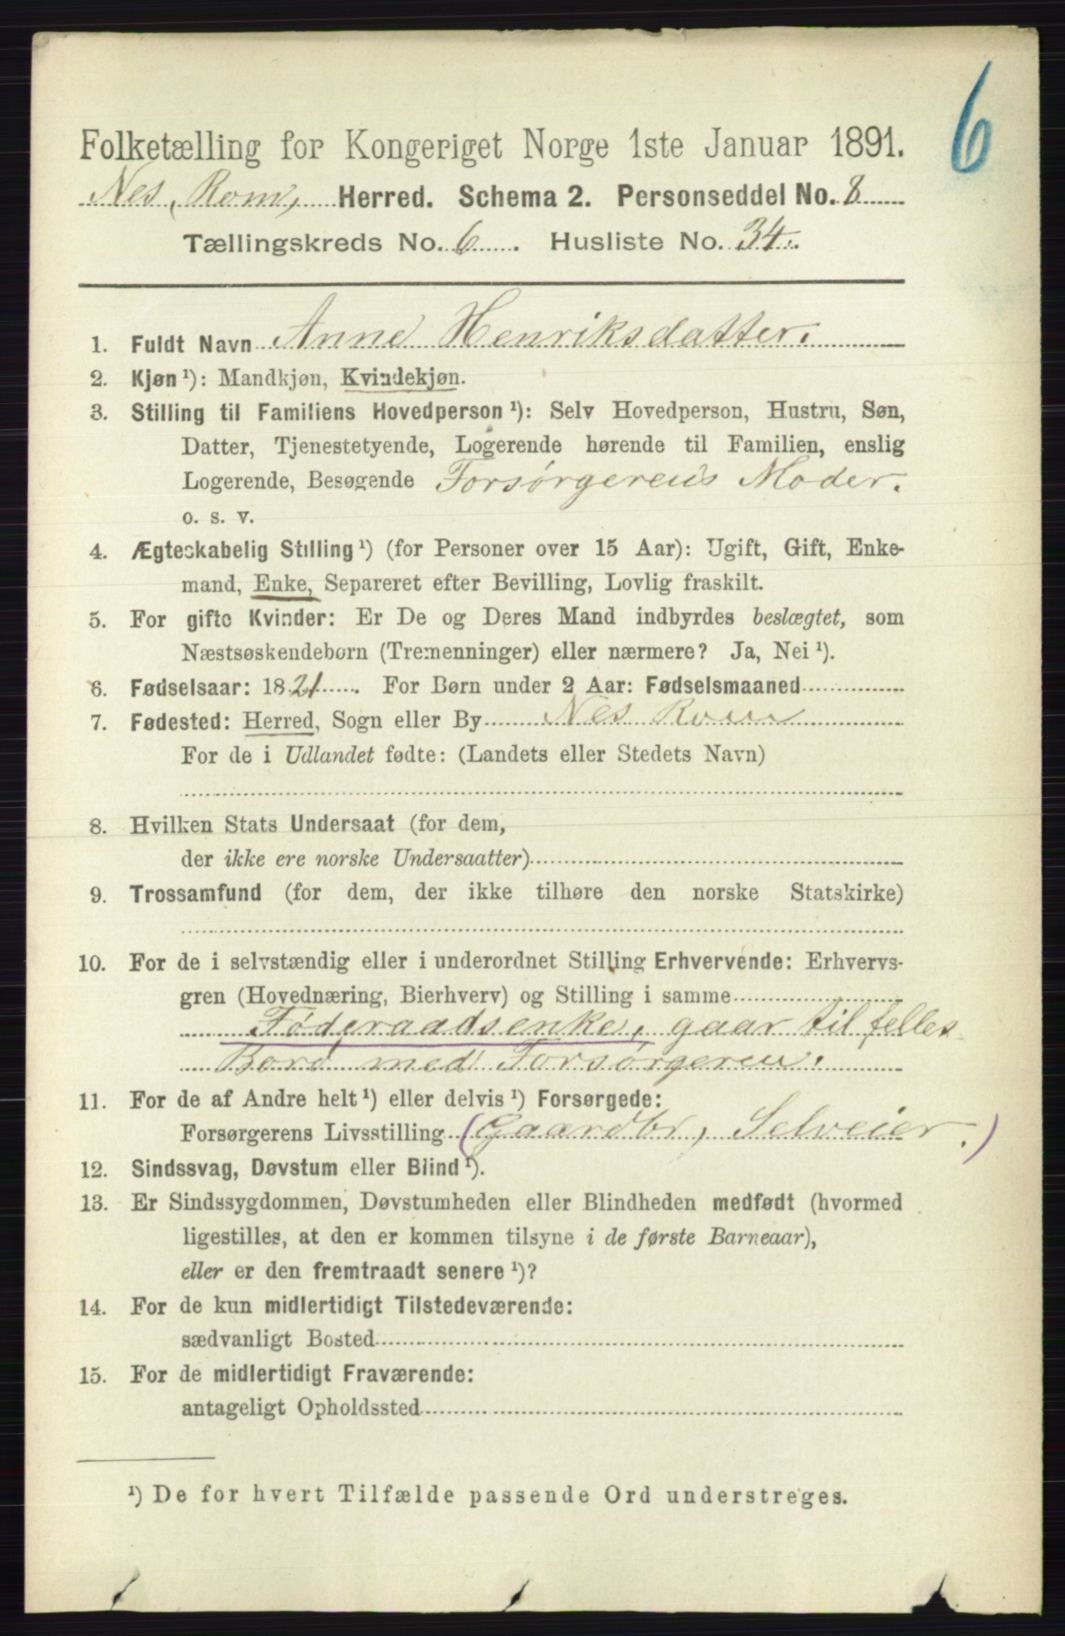 6
Folketælling for Kongeriget Norge 1ste Januar 1891.
Nes, Rom, Herred. Schema 2. Personseddel No. 8
Tællingskreds No. 6. Husliste No. 34.
1. Fuldt Navn Anne Henriksdatter.
2. Kjøn ¹): Mandkjøn, Kvindekjøn.
3. Stilling til Familiens Hovedperson ¹): Selv Hovedperson, Hustru, Søn,
Datter, Tjenestetyende, Logerende hørende til Familien, enslig
Logerende, Besøgende Forsørgerens Moder.
o. s. v.
4. Ægteskabelig Stilling ¹) (for Personer over 15 Aar): Ugift, Gift, Enke-
mand, Enke, Separeret efter Bevilling, Lovlig fraskilt.
5. For gifte Kvinder: Er De og Deres Mand indbyrdes beslægtet, som
Næstsøskendebørn (Tremenninger) eller nærmere? Ja, Nei ¹).
6. Fødselsaar: 1821. For Børn under 2 Aar: Fødselsmaaned
7. Fødested: Herred, Sogn eller By Nes Rom
For de i Udlandet fødte: (Landets eller Stedets Navn)
8. Hvilken Stats Undersaat (for dem,
der ikke ere norske Undersaatter)
9. Trossamfund (for dem, der ikke tilhøre den norske Statskirke)
10. For de i selvstændig eller i underordnet Stilling Erhvervende: Erhvervs-
gren (Hovednæring, Bierhverv) og Stilling i samme
Føderaadsenke, gaar til felles
Bord med Forsørgeren.
11. For de af Andre helt ¹) eller delvis ¹) Forsørgede:
Forsørgerens Livsstilling (Gaardbr, Selveier.)
12. Sindssvag, Døvstum eller Blind ¹).
13. Er Sindssygdommen, Døvstumheden eller Blindheden medfødt (hvormed
ligestilles, at den er kommen tilsyne i de første Barneaar),
eller er den fremtraadt senere ¹)?
14. For de kun midlertidigt Tilstedeværende:
sædvanligt Bosted
15. For de midlertidigt Fraværende:
antageligt Opholdssted
¹) De for hvert Tilfælde passende Ord understreges.